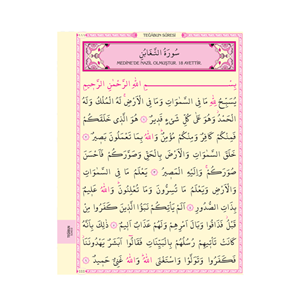 TEĞABUN SÛRESİ
سُورَةُ التَّغَابُنِ
MEDİNE'DE NAZİL OLMUŞTUR. 18 AYETTİR.
بِسْــــــمِ اللهِ الرَّحْمٰنِ الرَّحِيمِ
يُسَبِّحُ لِلّٰهِ مَا فِي السَّمٰوَاتِ وَمَا فِي الْاَرْضِ لَهُ الْمُلْكُ وَلَهُ
الْحَمْدُ وَهُوَ عَلٰى كُلِّ شَيْءٍ قَدِيرٌ هُوَ الَّذِي خَلَقَكُمْ
فَمِنْكُمْ كَافِرٌ وَمِنْكُمْ مُؤْمِنٌ وَاللهُ بِمَا تَعْمَلُونَ بَصِيرٌ
خَلَقَ السَّمٰوَاتِ وَالْاَرْضَ بِالْحَقِّ وَصَوَّرَكُمْ فَاَحْسَنَ
صُوَرَكُمْ وَاِلَيْهِ الْمَصِيرُ يَعْلَمُ مَا فِي السَّمٰوَاتِ
وَالْاَرْضِ وَيَعْلَمُ مَا تُسِرُّونَ وَمَا تُعْلِنُونَ وَاللهُ عَلِيمٌ
بِذَاتِ الصُّدُورِ اَلَمْ يَاْتِكُمْ نَبَؤُا الَّذِينَ كَفَرُوا مِنْ
قَبْلُ فَذَاقُوا وَبَالَ اَمْرِهِمْ وَلَهُمْ عَذَابٌ اَلِيمٌ ذٰلِكَ بِاَنَّهُ
كَانَتْ تَاْتِيهِمْ رُسُلُهُمْ بِالْبَيِّنَاتِ فَقَالُوا اَبَشَرٌ يَهْدُونَنَا
فَكَفَرُوا وَتَوَلَّوْا وَاسْتَغْنَى اللهُ وَاللهُ غَنِيٌّ حَمِيدٌ